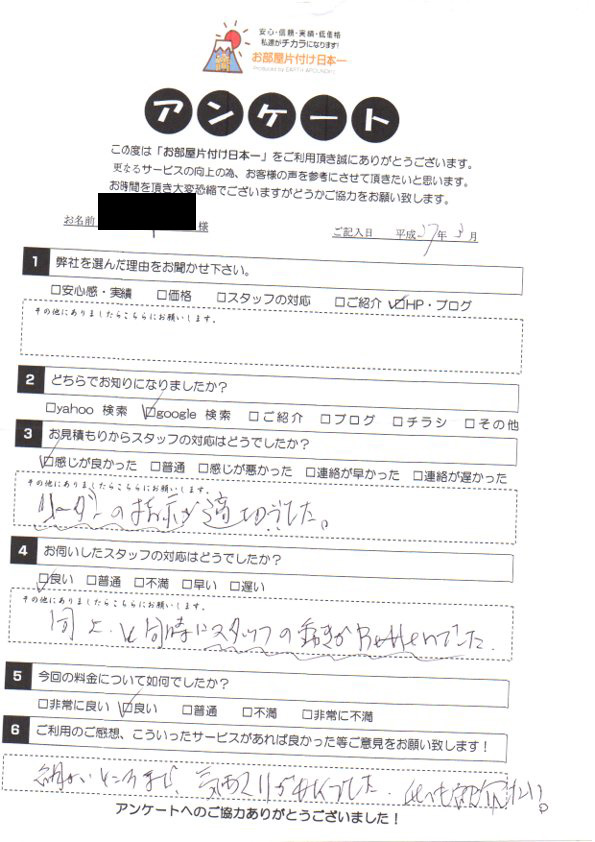 安心・信頼・実績・低価格
私達がチカラになります!
お部屋片付け日本一
Produced by EARTH AROUND
アンケート
この度は「お部屋片付け日本一」をご利用頂き誠にありがとうございます。
更なるサービスの向上の為、お客様の声を参考にさせて頂きたいと思います。
お時間を頂き大変恐縮でございますがどうかご協力をお願い致します。
お名前 様 ご記入日 平成27年3月
1 弊社を選んだ理由をお聞かせ下さい。
□安心感・実績 □価格 □スタッフの対応 □ご紹介 ☑HP・ブログ
その他にありましたらこちらにお願いします。
2 どちらでお知りになりましたか?
□yahoo 検索 ☑google 検索 □ご紹介 □ブログ □チラシ □その他
3 お見積もりからスタッフの対応はどうでしたか?
☑感じが良かった □普通 □感じが悪かった □連絡が早かった □連絡が遅かった
その他にありましたらこちらにお願いします。
リーダーの指示が適切でした。
4 お伺いしたスタッフの対応はどうでしたか?
☑良い □普通 □不満 □早い □遅い
その他にありましたらこちらにお願いします。
同上.と同時にスタッフの動きがBetterでした.
5 今回の料金について如何でしたか?
□非常に良い ☑良い □普通 □不満 □非常に不満
6 ご利用のご感想、こういったサービスがあれば良かった等ご意見をお願い致します!
細かいところまで、気配りが
アンケートへのご協力ありがとうございました!